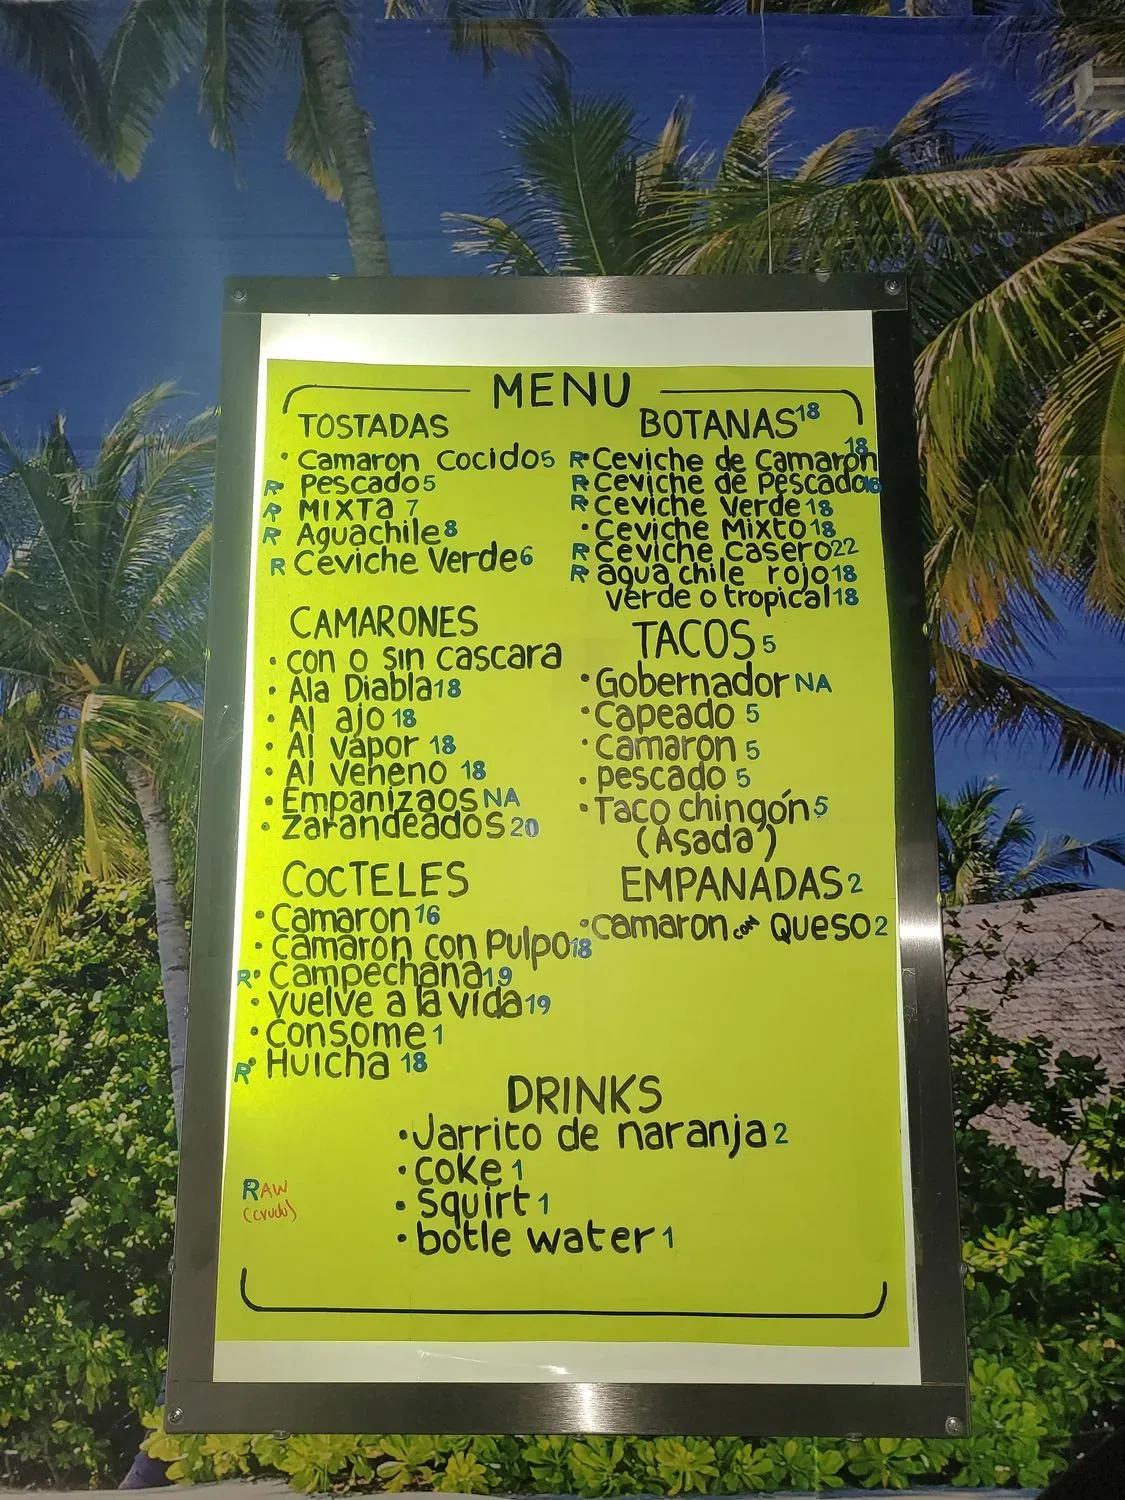 MENU
TOSTADAS
· Camaron Cocido 5
R Pescado 5
R MIXTA 7
R Aguachile 8
R Ceviche Verde 6
CAMARONES
· con o sin cascara
· Ala Diabla 18
· Al ajo 18
· Al vapor 18
· Al veneno 18
· Empanizaos NA
· Zarandeados 20
COCTELES
· Camaron 16
· Camaron con Pulpo 18
R· Campechana 19
· Vuelve a la vida 19
· Consome 1
R· Huicha 18
BOTANAS 18
R· Ceviche de Camaron 18
R· Ceviche de Pescado
R· Ceviche Verde 18
· Ceviche Mixto 18
R Ceviche casero 22
R agua chile rojo 18
verde o tropical 18
TACOS 5
· Gobernador NA
· Capeado 5
· Camaron 5
· pescado 5
· Taco chingón 5
(Asada)
EMPANADAS 2
· Camaron con Queso 2
DRINKS
· Jarrito de naranja 2
· coke 1
· Squirt 1
· botle water 1
RAW
(crudo)